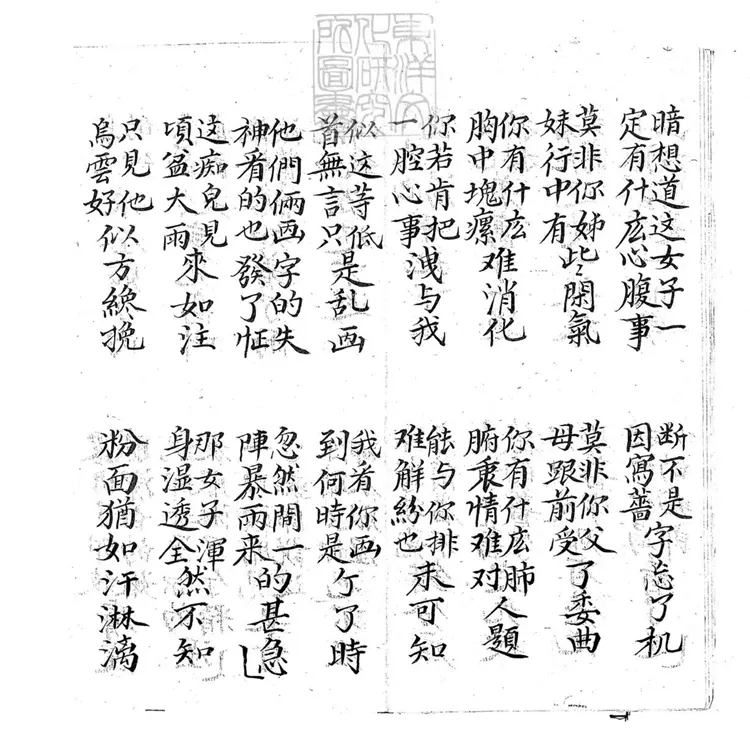 東洋文
化研究
所圖書
暗想道这女子一定有什庅心腹事
断不是因寫薔字忘了机
莫非你姊妹行中有些閑氣
莫非你父母跟前受了委曲
你有什庅胸中塊瘰难消化
你有什庅肺腑衷情难对人題
你若肯把一腔心事洩与我
能与你排难解紛也未可知
似这等低首無言只是乱画
我看你画到何時是个了時
他們倆画字的失神看的也發了怔
忽然間一陣暴雨来的甚急
这痴皃見頃盆大雨來如注
那女子渾身湿透全然不知
只見他烏雲好似方纔挽
粉面猶如汗淋漓